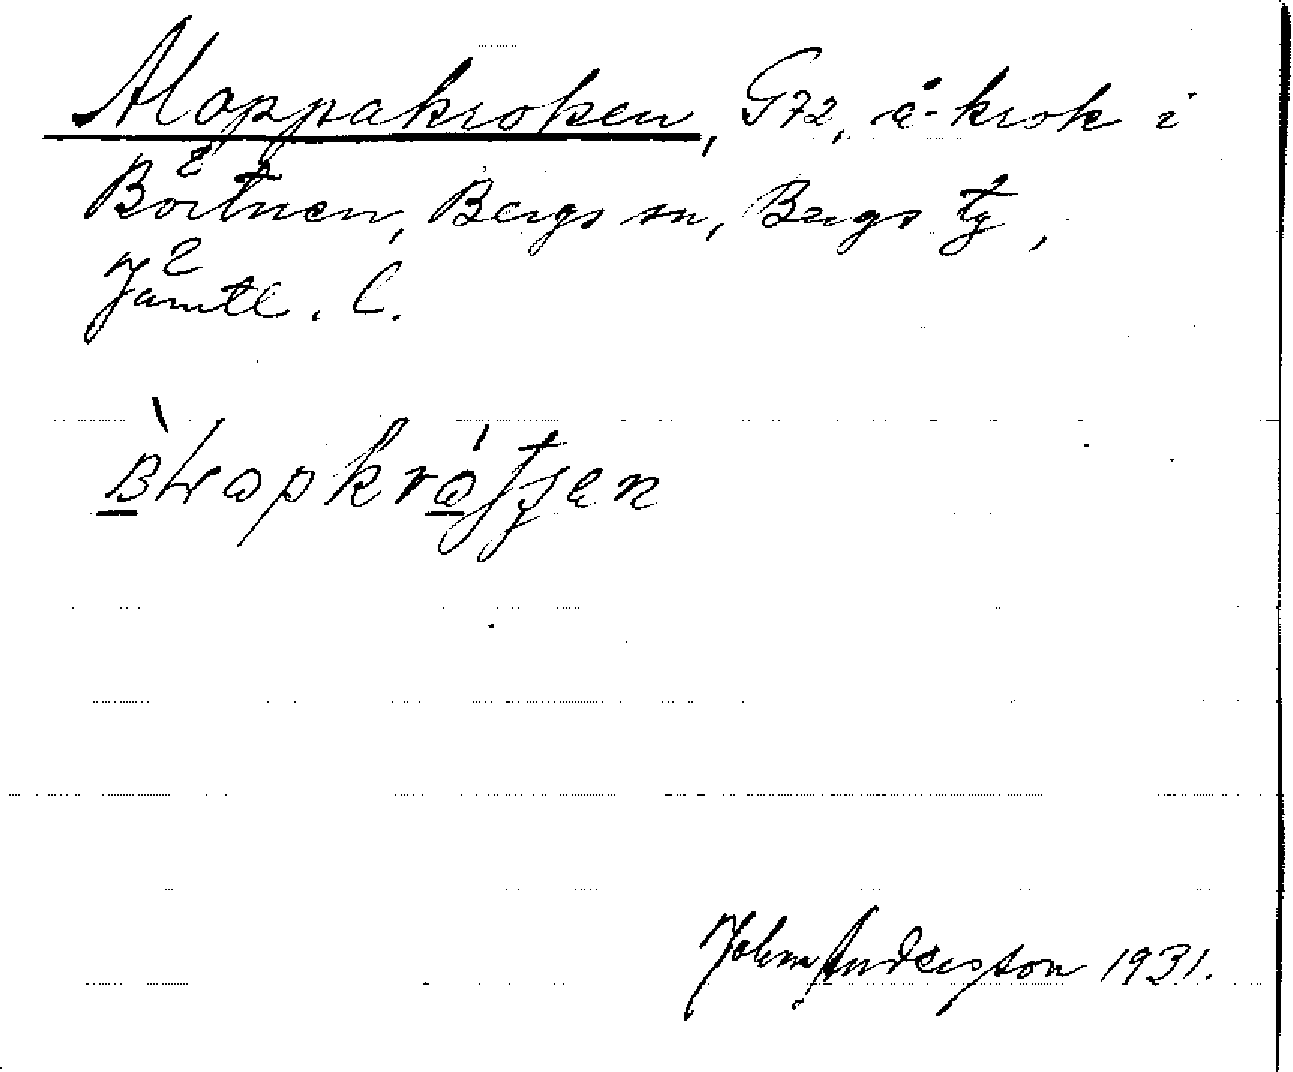 Aloppakroken, G72, å-krok i
Börtnen, Bergs sn, Bergs tg,
Jämtl. l.
John Anderson 1931.